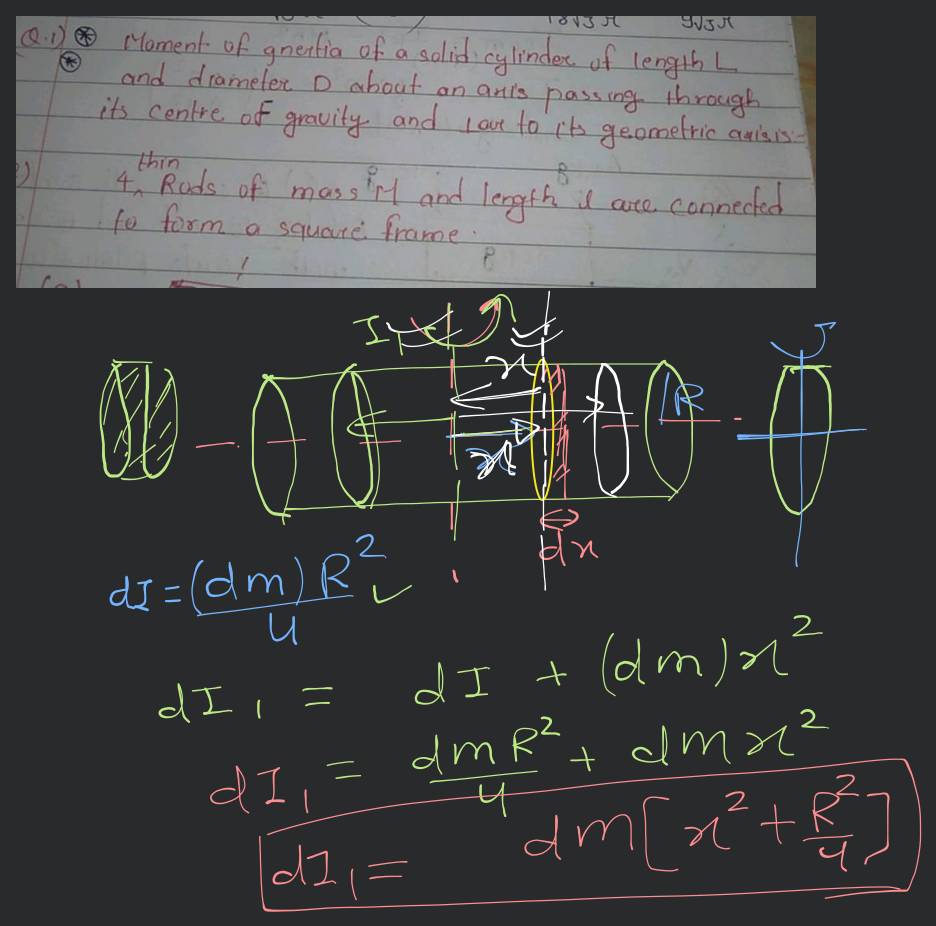 18√3 π 9√3 π
Q.1) * Moment of gnertia of a solid cylinder of length L
* and diameter D about an axis passing through
its centre of gravity and Lar to its geometric axis is-
thin
4 Rods of mass M and length l are connected
to form a square frame.
I₁
x
R
x
dx
dI = (dm) R²/4 ✓
dI₁ = dI + (dm)x²
dI₁ = dmR²/4 + dmx²
dI₁ = dm[x² + R²/4]